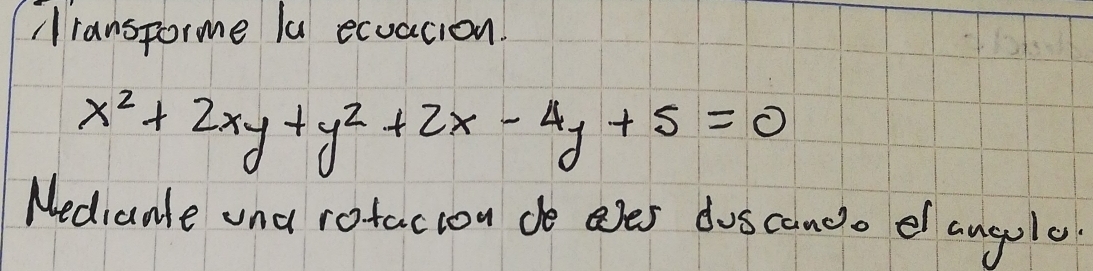 Transforme la ecuacion.
x² + 2xy + y² + 2x - 4y + 5 = 0
Mediante una rotacion de ejes buscando el angulo.